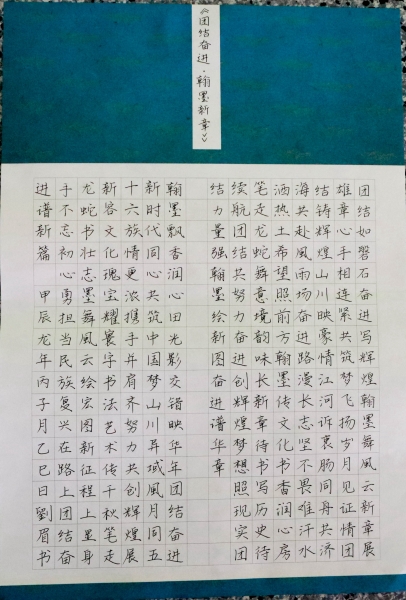 《团结奋进·翰墨新章》
团结如磐石奋进写辉煌翰墨舞風云新章展
雄章心手相连紧共筑梦飞扬岁月见证情团
结铸辉煌山川映豪情江河诉衷肠同舟共济
海共赴風雨场奋进路漫长志坚不畏难汗水
洒热土希望照前方翰墨传文化书香润心房
笔走龙蛇舞意境韵味长新章待书写历史待
续航团结共努力奋进创辉煌梦想照现实团
结力量强翰墨绘新图奋进谱华章
翰墨飘香润心田光影交错映华年团结奋进
新时代同心共筑中国梦山川异域風月同五
十六族情更浓携手并肩齐努力共创辉煌展
新容文化瑰宝耀寰宇书法艺术传千秋笔走
龙蛇书壮志墨舞風云绘宏图新征程上显身
手不忘初心勇担当民族复兴在路上团结奋
进谱新篇 甲辰龙年丙子月乙巳日劉眉书